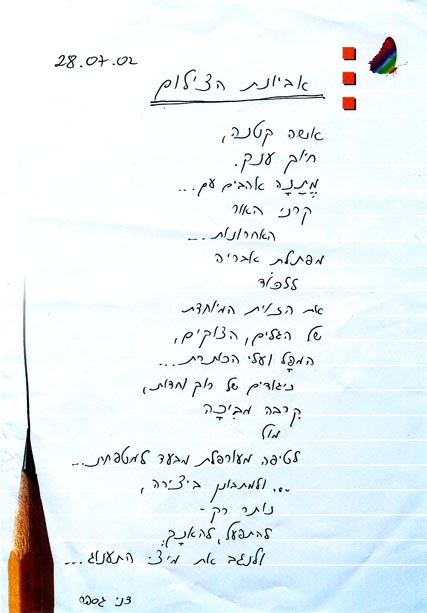 28.07.02
אביונת הצילום
אשה קטנה,
חיוך ענק.
מְתַנָּה אהבים עם...
קרני האור
האחרונות...
מפתלת אבריה
ללכוד
את הזוית המיוחדת
של הגלים, הצוקים,
המפָּל ועלי הכותרת...
ניגודים של רוך וחדות,
קִרבה מביכָה
מול
לטיפה מעורפלת מבעד למטפחת...
... ולמתבונן ביצירה,
נותר רק -
להתפעל, להאנָק,
ולנגב את מיצי התענוג...
דני גספר